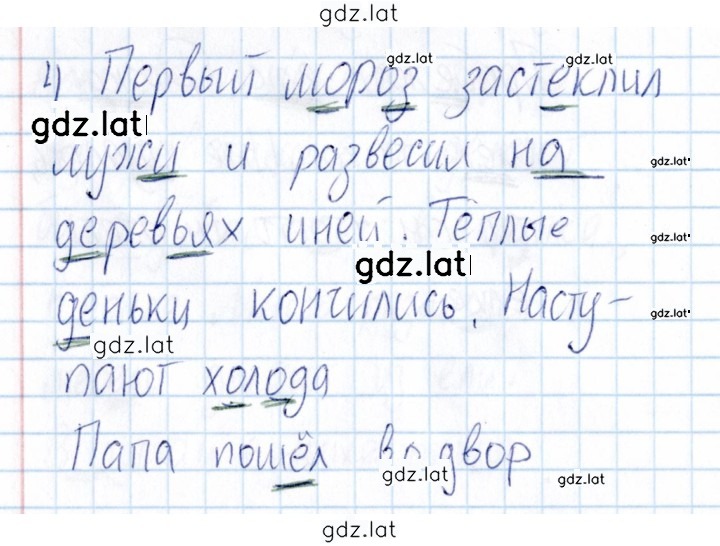 gdz.lat
gdz.lat gdz.lat
4) Первый мороз застеклил
gdz.lat
лужи и развесил на
gdz.lat
деревьях иней. Тёплые
gdz.lat
gdz.lat
деньки кончились. Насту-
gdz.lat
gdz.lat
пают холода
Папа пошёл во двор
gdz.lat gdz.lat
gdz.lat